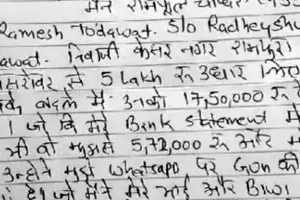 मैने रामपाल
Ramesh Todawat. S/o Radheyshy
awat. निवासी केसर नगर रामपुरा
से 5 Lakh रु उधार लिए
बदले में उनको 17,50,000 रु
। जो कि मेरे Bank Statement में
भी वो मुझसे 5,72,000 रु और
उन्होने मुझे whatsapp पर Gun की
है। जो मैने मेरे भाई और Biwi